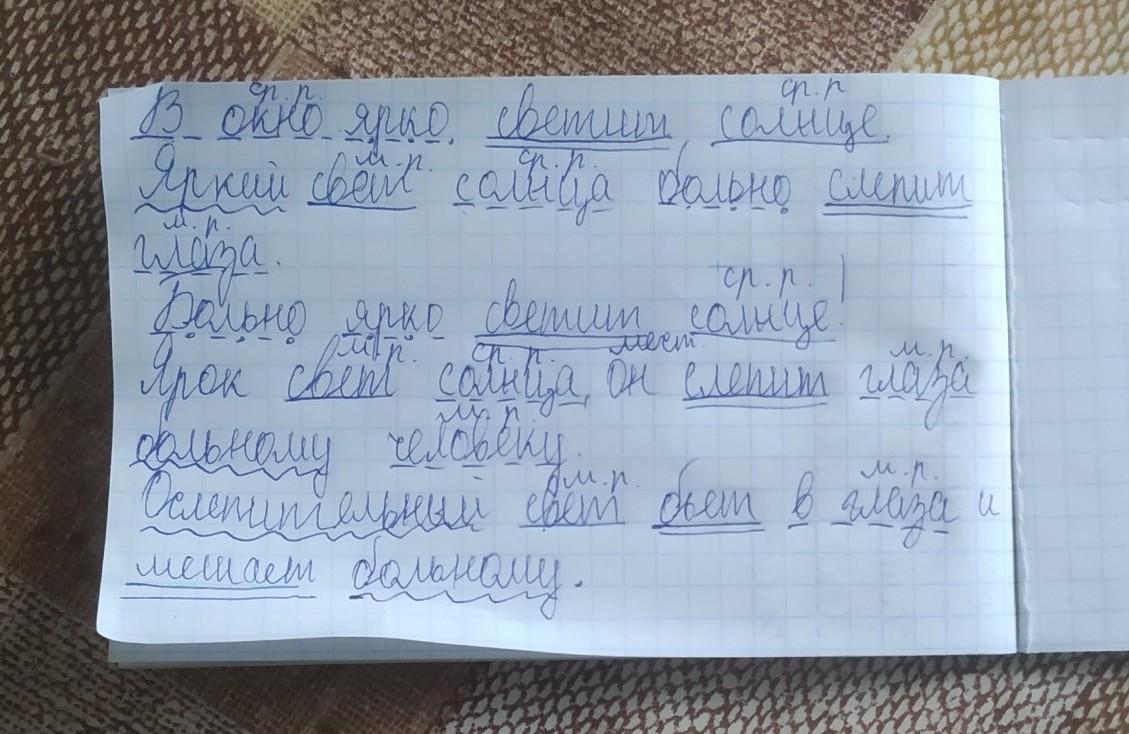 ср. р. ср. р
В окно ярко светит солнце.
м. р. ср. р.
Яркий свет солнца больно слепит
м. р.
глаза.
ср. р.
Больно ярко светит солнце!
м. р. ср. р. мест. м. р.
Ярок свет солнца, он слепит глаза
м. р.
больному человеку.
м. р. м. р.
Ослепительный свет бьет в глаза и
мешает больному.